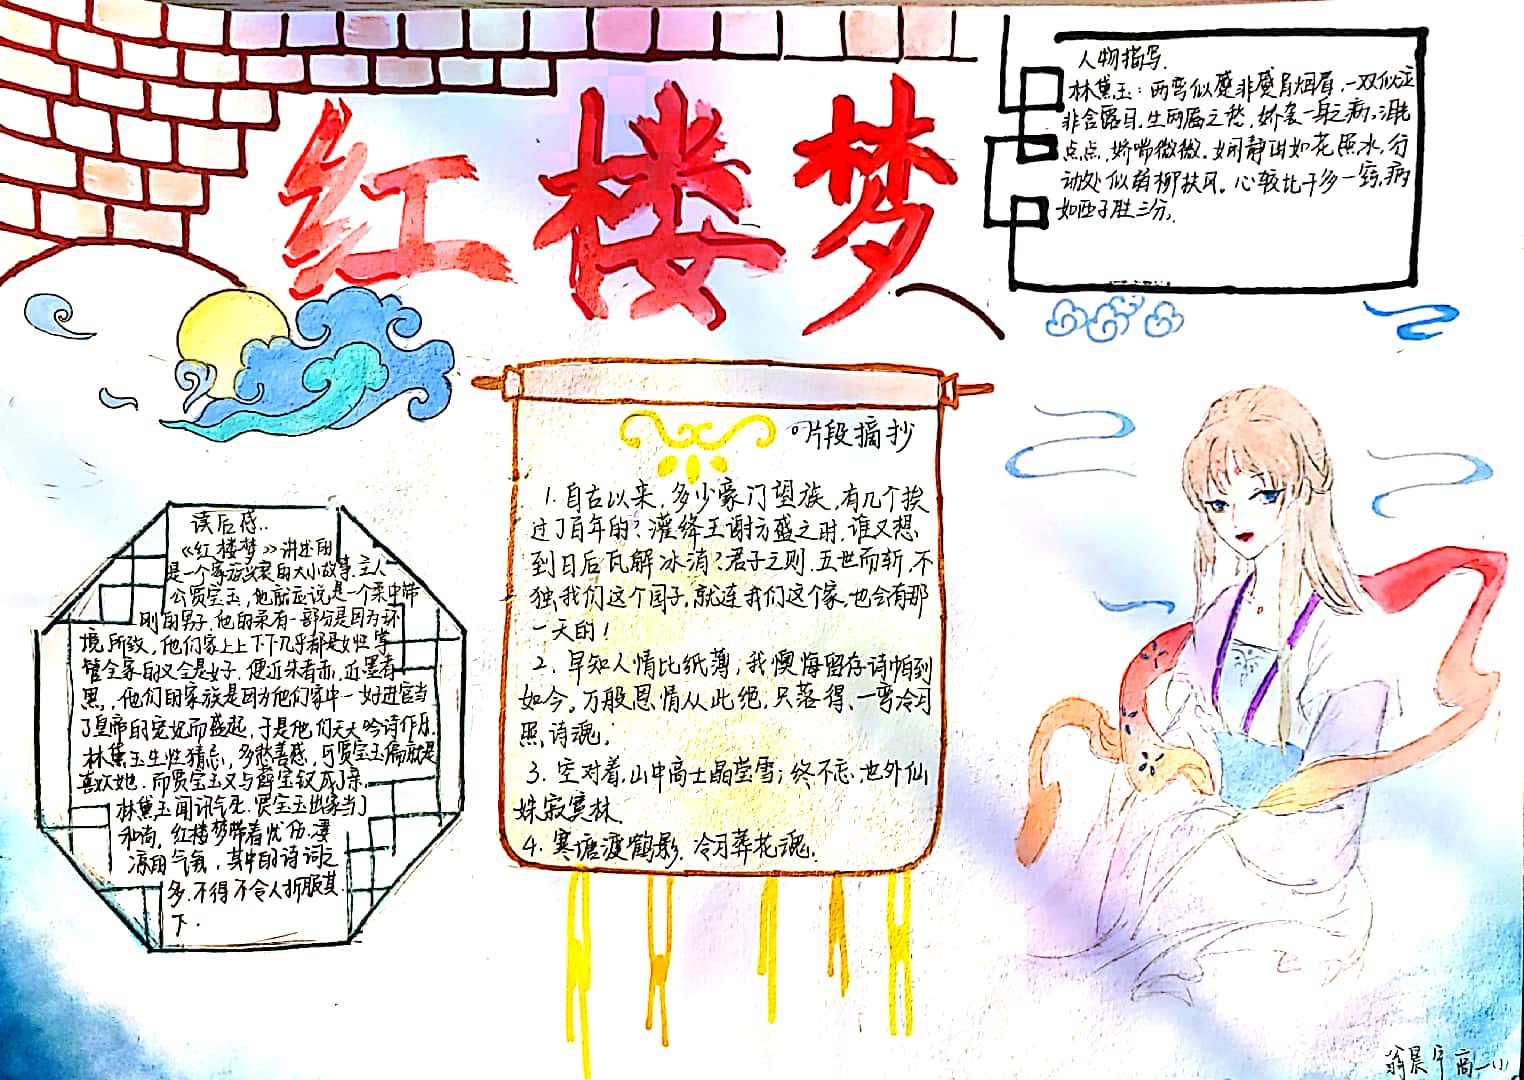 红楼梦
人物描写.
林黛玉：两弯似蹙非蹙肙烟眉，一双似泣
非含露目.生两靥之愁，娇袭一身之病.泪光
点点，娇喘微微.娴静时如花照水，行
动处似弱柳扶风。心较比干多一窍，病
如西子胜三分.
片段摘抄
1. 自古以来，多少豪门望族，有几个挨
过了百年的？灌绛王谢方盛之时，谁又想
到日后瓦解冰消？君子之则，五世而斩，不
独我们这个园子，就连我们这个家，也会有那
一天的！
2. 早知人情比纸薄；我懊悔留存诗帕到
如今。万般恩情从此绝，只落得、一弯冷月
照诗魂.
3. 空对着，山中高士晶莹雪；终不忘世外仙
姝寂寞林.
4. 寒塘渡鹤影. 冷月葬花魂.
读后感..
《红楼梦》讲述的
是一个家族兴衰的大小故事.主人
公贾宝玉，他就应说是一个柔中带
刚的男子，他的柔有一部分是因为环
境所致，他们家上上下下几乎都是女性 掌
管全家的又会是女子. 便近朱者赤，近墨者
黑，他们的家族是因为他们家中一女对进宫当
了皇帝的宠妃而盛起，于是他们天天吟诗作乐.
林黛玉生性猜忌，多愁善感，可贾宝玉偏就是
喜欢她. 而贾宝玉又与薛宝钗成了亲，
林黛玉闻讯气死. 贾宝玉出家当了
和尚，红楼梦带着忧伤、凄
凉的气氛，其中的诗词之
多.不得不令人折服其
下.
翁晨宇 高一(1)